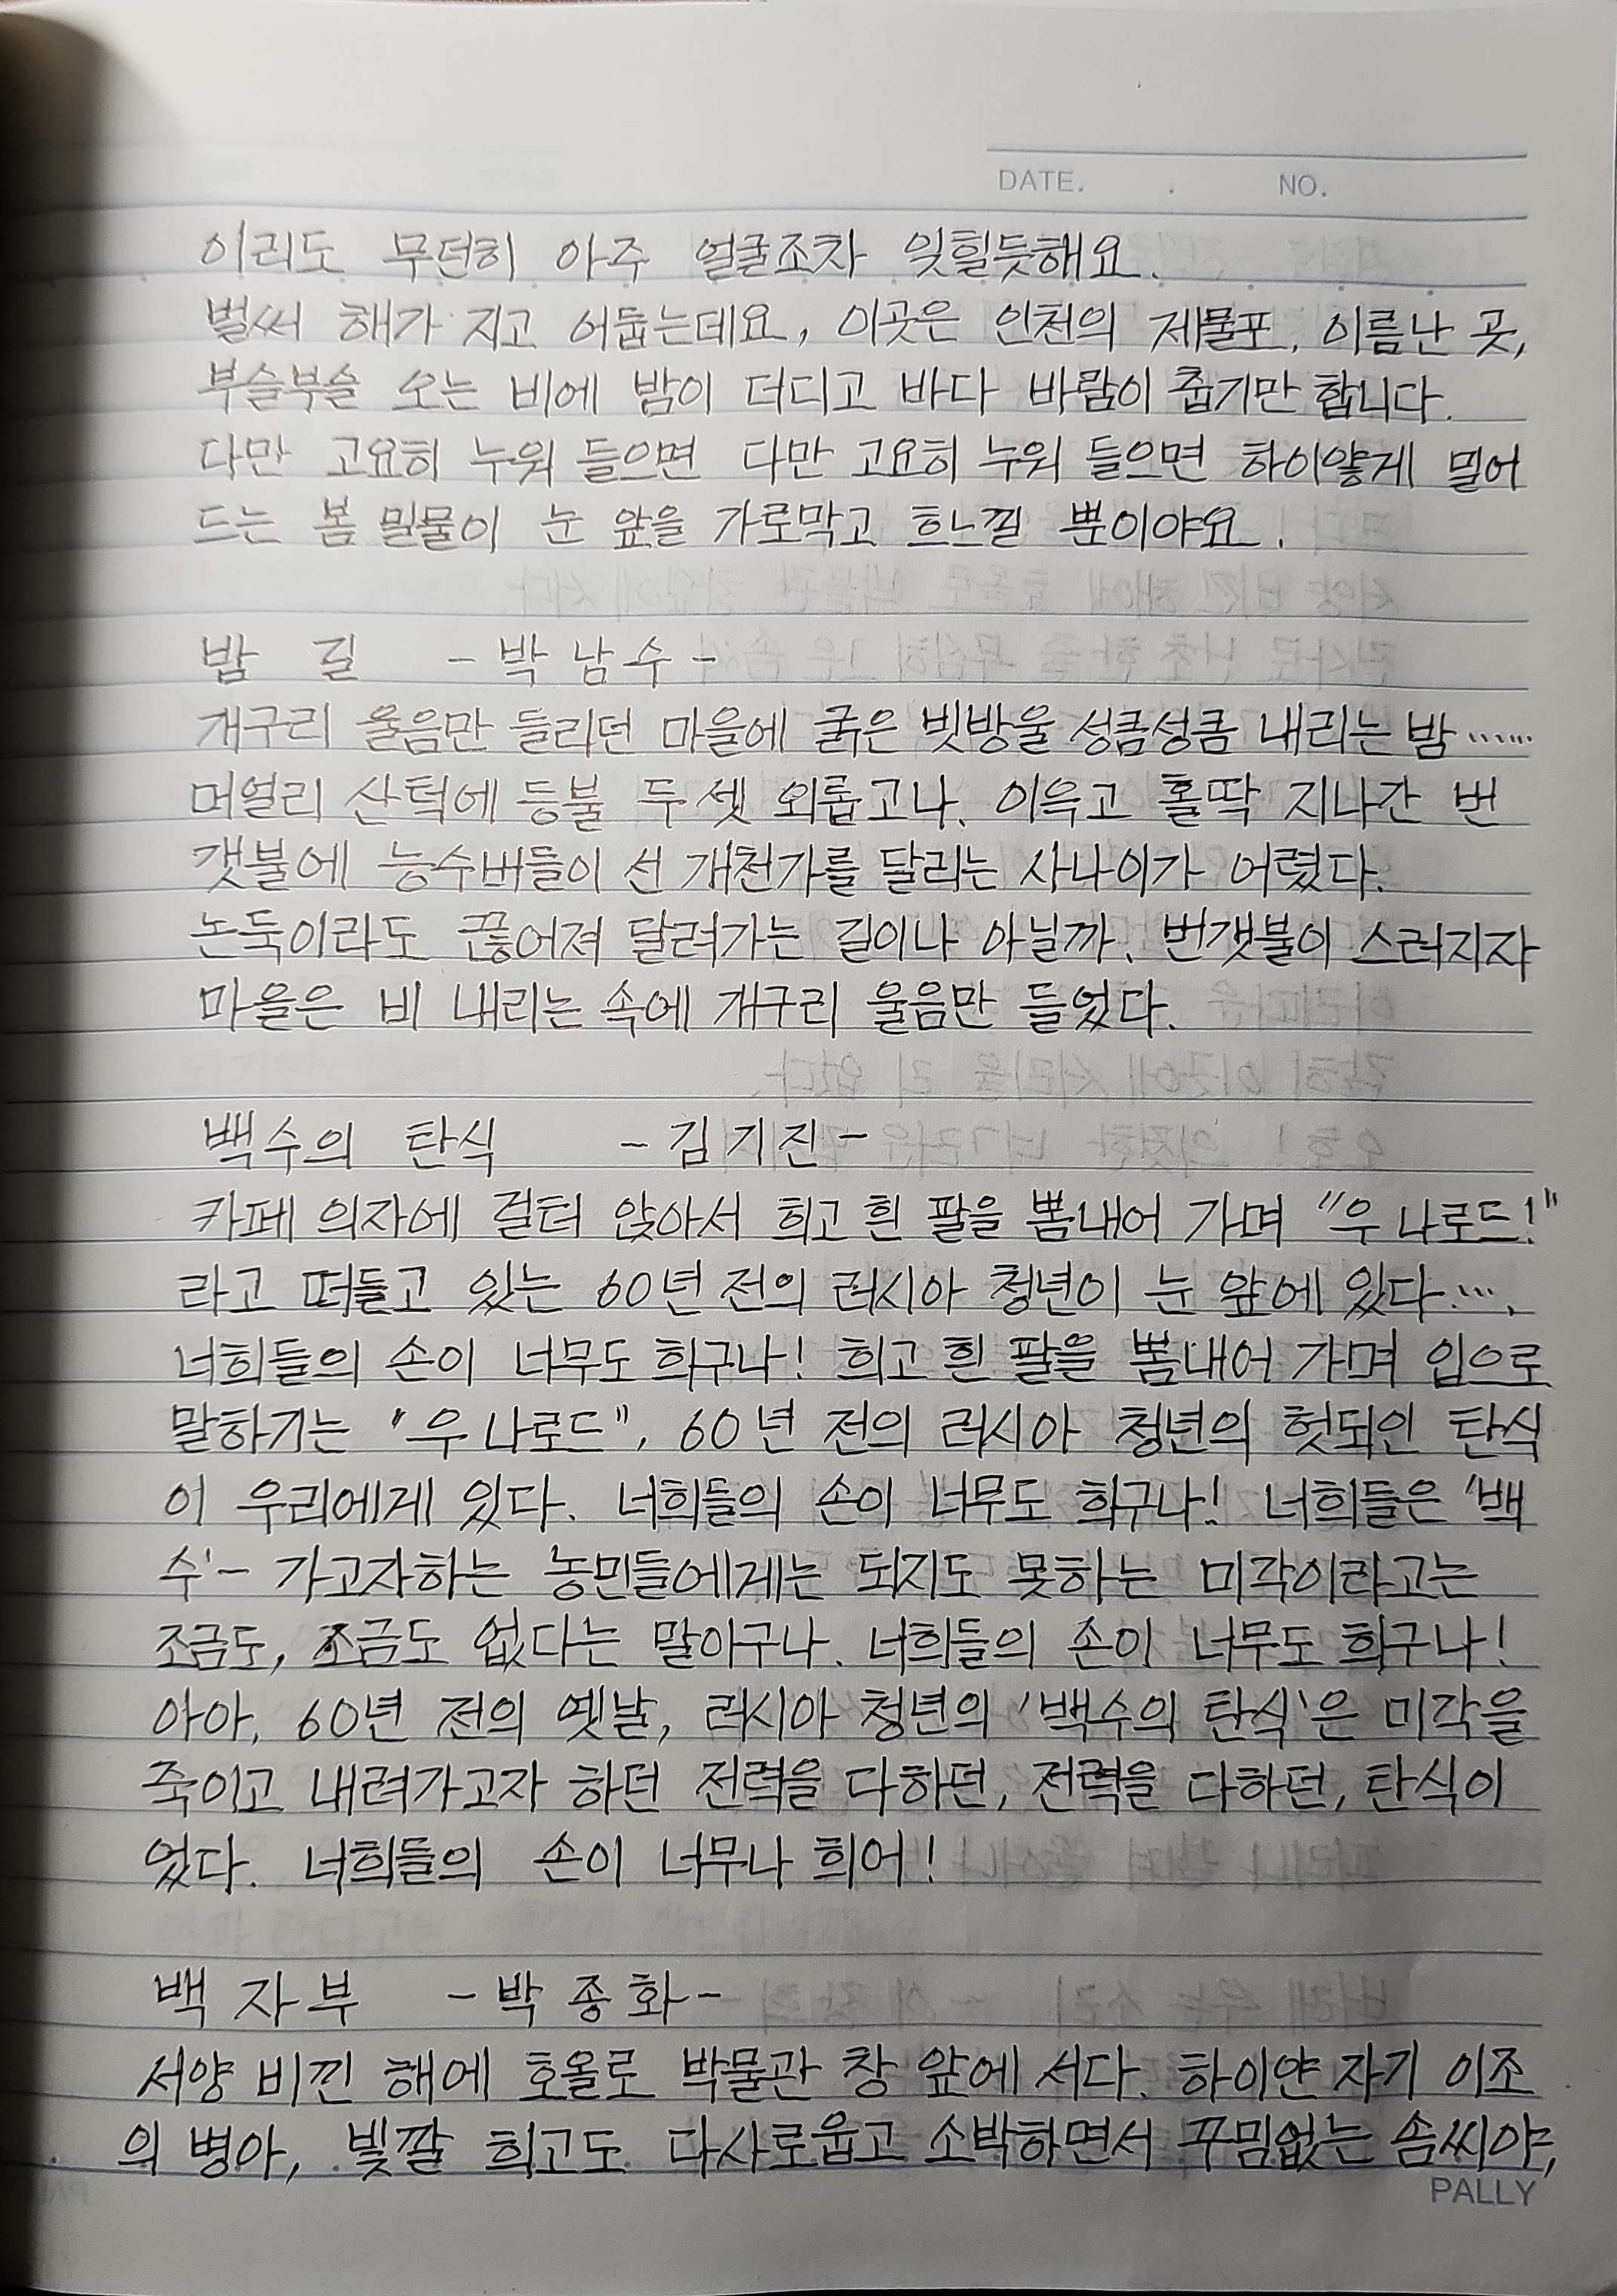 DATE. . NO.
이리도 무던히 아주 얼굴조차 잊힐듯해요.
벌써 해가 지고 어둡는데요, 이곳은 인천의 제물포, 이름난 곳,
부슬부슬 오는 비에 밤이 더디고 바다 바람이 춥기만 합니다.
다만 고요히 누워 들으면 다만 고요히 누워 들으면 하이얗게 밀어
드는 봄 밀물이 눈 앞을 가로막고 흐느낄 뿐이야요.
밤 길 - 박 남 수 -
개구리 울음만 들리던 마을에 굵은 빗방울 성큼성큼 내리는 밤 ······
머얼리 산턱에 등불 두 셋 외롭고나. 이윽고 홀딱 지나간 번
갯불에 능수버들이 선 개천가를 달리는 사나이가 어렸다.
논둑이라도 끊어져 달려가는 길이나 아닐까. 번갯불이 스러지자
마을은 비 내리는 속에 개구리 울음만 들었다.
백수의 탄식 - 김 기 진 -
카페 의자에 걸터 앉아서 희고 흰 팔을 뽐내어 가며 "우 나로드!"
라고 떠들고 있는 60년 전의 러시아 청년이 눈 앞에 있다···.
너희들의 손이 너무도 희구나! 희고 흰 팔을 뽐내어 가며 입으로
말하기는 "우 나로드". 60년 전의 러시아 청년의 헛되인 탄식
이 우리에게 있다. 너희들의 손이 너무도 희구나! 너희들은 '백
수' - 가고자하는 농민들에게는 되지도 못하는 미각이라고는
조금도, 조금도 없다는 말이구나. 너희들의 손이 너무도 희구나!
아아, 60년 전의 옛날, 러시아 청년의 '백수의 탄식'은 미각을
죽이고 내려가고자 하던 전력을 다하던, 전력을 다하던, 탄식이
었다. 너희들의 손이 너무나 희어!
백 자 부 - 박 종 화 -
서양 비낀 해에 호올로 박물관 창 앞에 서다. 하이얀 자기 이조
의 병아, 빛깔 희고도 다사로웁고 소박하면서 꾸밈없는 솜씨야,
PALLY